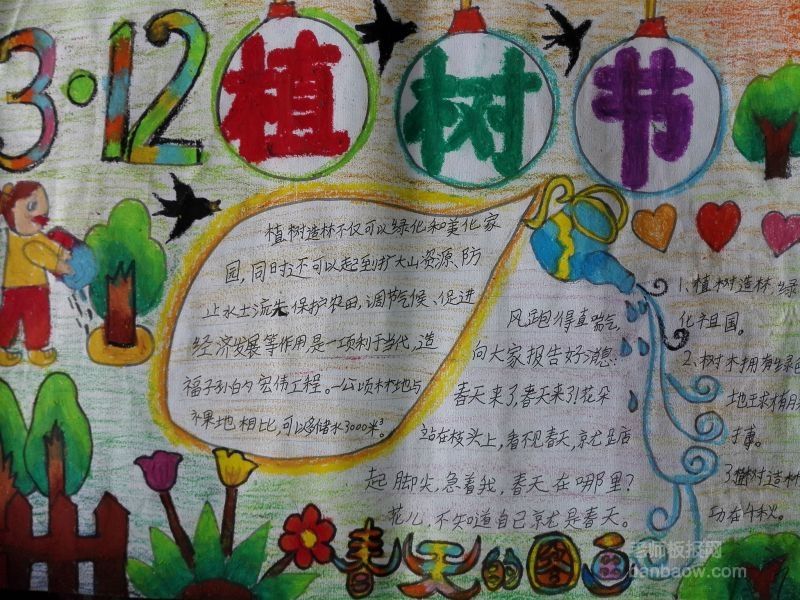 3·12 植树节
植树造林不仅可以绿化和美化家
园,同时还可以起到扩大山资源、防
止水土流失、保护农田,调节气候、促进
经济发展等作用,是一项利于当代,造
福子孙的宏伟工程。一公顷林地与
裸地相比,可以多储水3000米³。
风跑得直喘气,
向大家报告好消息:
春天来了,春天来了!花朵
站在枝头上,看不见春天,就踮
起脚尖,急着找,春天在哪里?
花儿,不知道自己就是春天。
1.植树造林,绿
化祖国。
2.树木拥有绿色
地球才有脉
搏。
3.植树造林
功在千秋。
春天的图画
老师板报网
banbaow.com